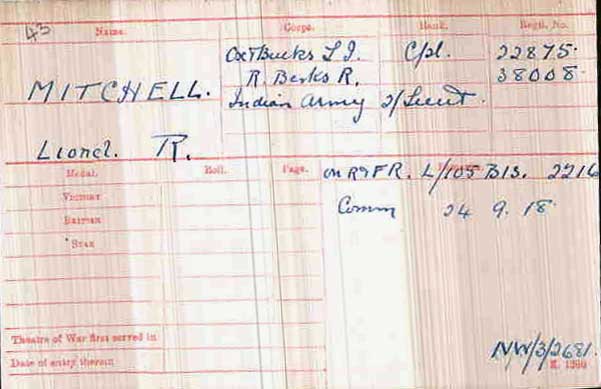 43
Name. Corps. Rank. Regtl. No.
Ox & Bucks L I. Cpl. 22875.
R. Berks R. 38008.
MITCHELL. Indian Army 2/Lieut.
Lionel. R.
Medal. Roll. Page. on R & F R. L/105 B15. 2216
Victory Comm 24 9. 18
British
Star
Theatre of War first served in
Date of entry therein NW/3/2681.
K. 1380